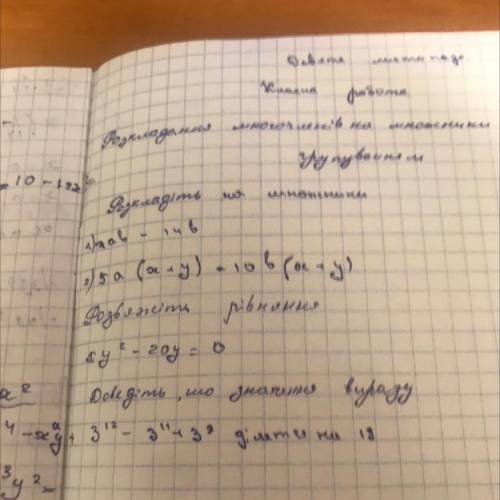 Дев'яте листопада
Класна робота
Розкладання многочленів на множники
групуванням
= 10 - 12x
Розкладіть на множники
1) 7ab - 14b
2) 5a (x+y) - 10b (x+y)
Розв'яжіть рівняння
5y² - 20y = 0
x²
Доведіть, що значення виразу
3¹² - 3¹¹ + 3⁹ ділиться на 19
³y² -